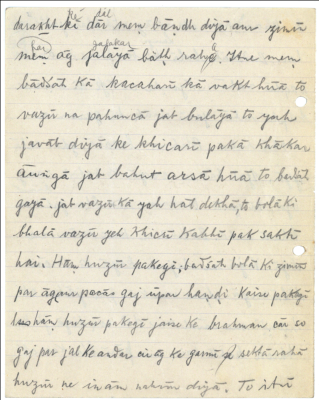 kī ḍāl
darakht kī ḍār meṃ bāṇdh diyā aur zimī
har jalākar
meṃ āg jalāyā bāṭh rahā. Itne meṃ
bādśāh kā kacaharī kā vakht huā to
vazīr na pahuncā jab bulāyā to yah
javāb diyā ke khicarī pakā khākar
āūṇgā jab bahut arsā huā to bādśāh
gayā. jab vazīr kā yah hāl dekhā, to bolā ki
bhalā vazīr yeh khicrī kabhī pak saktī
hai. Hāṃ huzūr pakegī; bādśāh bolā ki zimīn
par āg aur pacās gaj ūpar haṇḍi kaise pakegī
huzūr pakegī jaise ke brahman cār so
gaj par jal ke andar cirāg ke garmī se sektā rahā
huzūr ne inām nahīṃ diyā. To isī